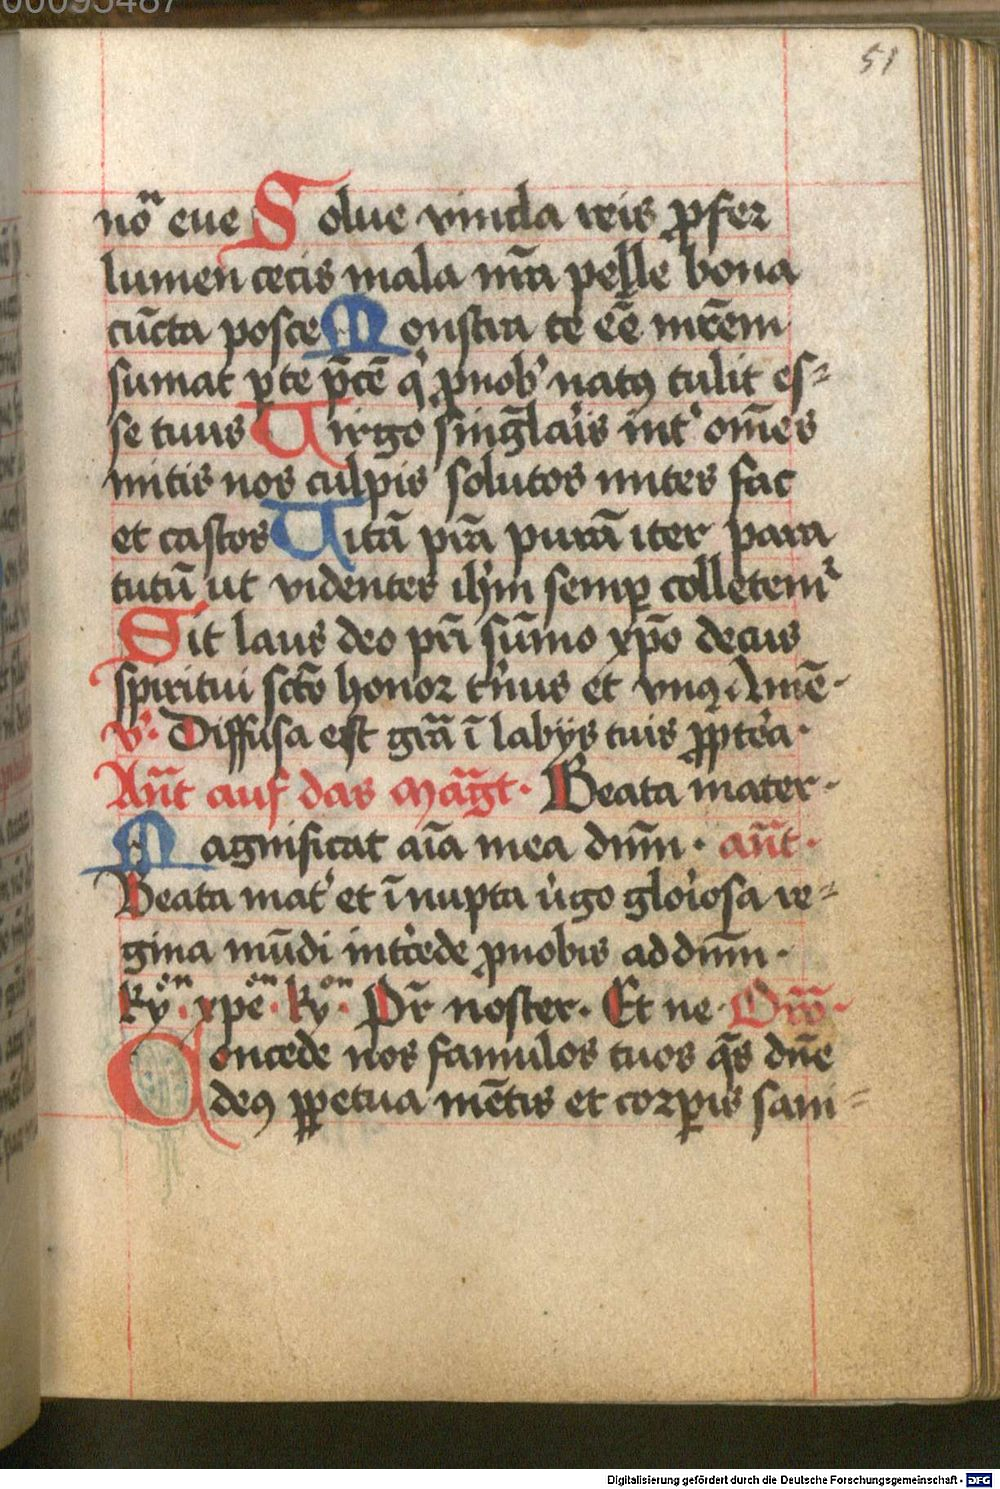 00095487
51
nōn eue Solue vincla reis ꝓfer
lumen cecis mala nr̄a pelle bona
cūcta posce Monstra te eē mr̄em
sumat p te p̄cē q' ꝓ nob' natꝯ tulit es-
se tuus Uirgo singl̄a'is int' om̄es
mitis nos culpis solutos mites fac
et castos Uitā p̄ra purā iter para
tutū ut videntes ih̄m semp colletem'
Sit laus deo pr̄i sūmo xp̄o decus
spiritui sct̄o honor t'nus et vnꝯ Amē·
v'· Diffusa est gr̄a ī labijs tuis ꝓpte'a·
An̄t auf das Mag̅t· Beata mater·
Magnificat aīa mea dnm̄· an̄t·
Beata mat' et īnupta u'go glo'iosa re-
gina mūdi int'cede ꝓ nobis ad dnm̄·
kyōn· xpēn· kyōn· Pr̄ noster· Et ne· Orō·
Concede nos famulos tuos q̄s dn̄e
deꝯ ꝑpetua mētis et corꝑis sani-
Digitalisierung gefördert durch die Deutsche Forschungsgemeinschaft - DFG